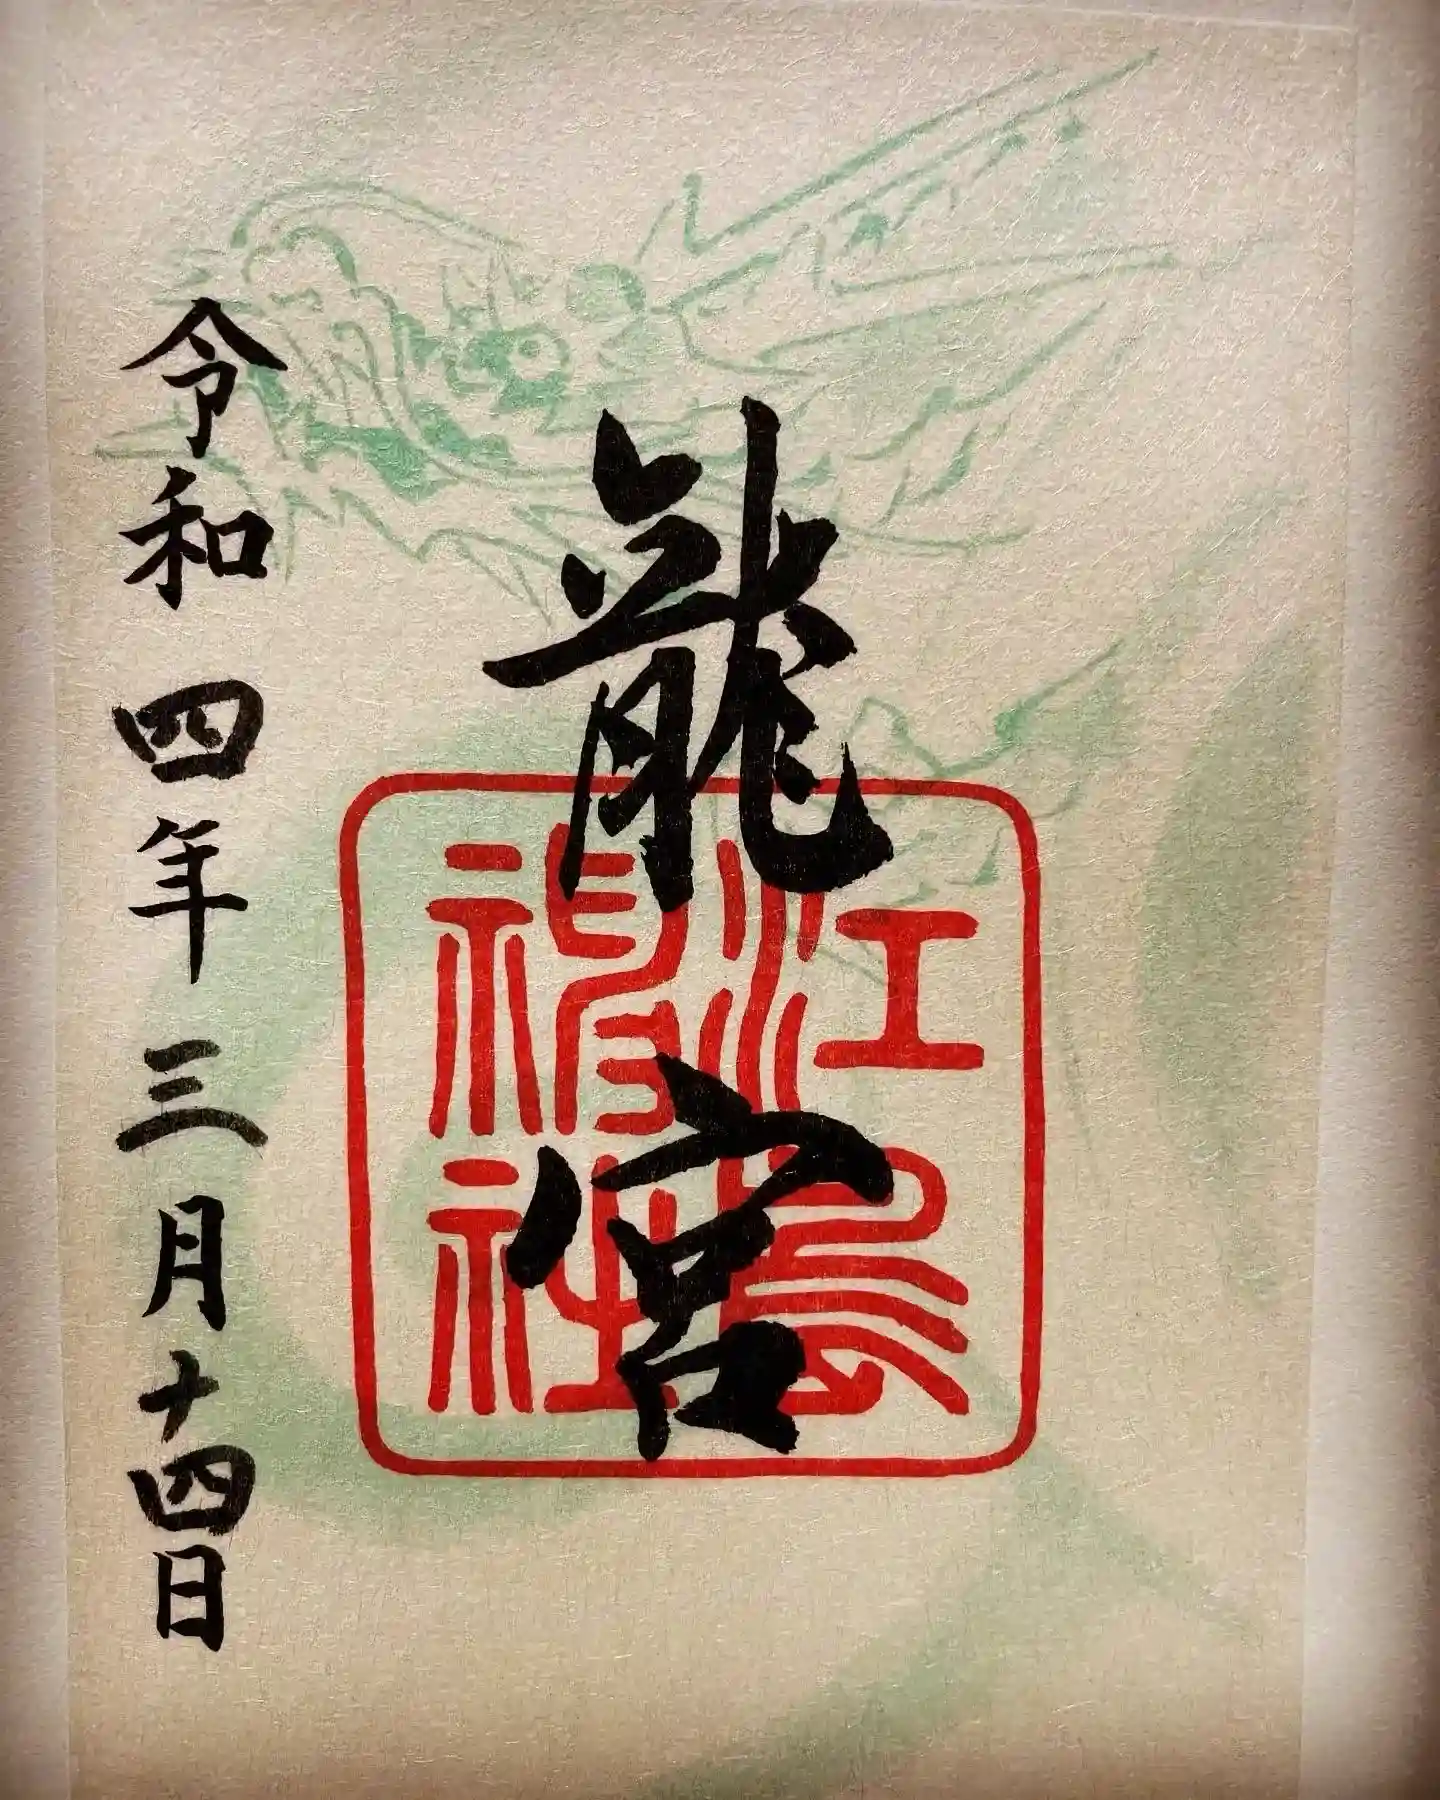 龍宮
江島
神社
令和四年三月十四日